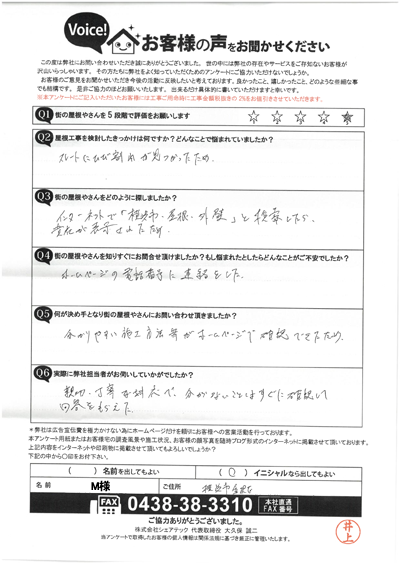 Voice! お客様の声をお聞かせください
この度は弊社にお問い合わせいただき誠にありがとうございました。 世の中には弊社の存在やサービスをご存知ないお客様が
沢山いらっしゃいます。 その方たちに弊社をよく知っていただくためのアンケートにご協力いただけないでしょうか。
お客様のご意見をお聞かせいただき今後の活動に反映したいと考えております。良かったこと、嬉しかったこと、どのような些細な事
でも結構です。 是非ご協力のほどお願いいたします。 出来るだけ具体的に書いていただけますと幸いです。
※本アンケートにご記入いただいたお客様には工事ご用命時に工事金額税抜きの 2%をお値引きさせていただきます。
Q1 街の屋根やさんを 5 段階で評価をお願いします ☆ ☆ ☆ ☆ ★
Q2 屋根工事を検討したきっかけは何ですか？どんなことで悩まれていましたか？
スレートにひび割れが見つかったため。
Q3 街の屋根やさんをどのように探しましたか？
インターネットで「 ・屋根・外壁」と検索したら、
会社が表示されたため。
Q4 街の屋根やさんを知りすぐにお問合せ頂けましたか？もし悩まれたとしたらどんなことがご不安でしたか？
ホームページの電話番号に連絡をした。
Q5 何が決め手となり街の屋根やさんにお問い合わせ頂きましたか？
分かりやすい施工方法等がホームページで確認できたため。
Q6 実際に弊社担当者がお伺いしていかがでしたか？
親切、丁寧な対応で、分からないことはすぐに確認して
回答をもらえた。
＊弊社は広告宣伝費を極力かけない為にホームページだけを頼りにお客様への営業活動を行っております。
本アンケート用紙またはお客様宅の調査風景や施工状況、お客様の顔写真を随時ブログ形式のインターネットに掲載させて頂いております。
上記内容をインターネットや印刷物に掲載させて頂いてもよろしいでしょうか？
下記の中から〇印をお付下さい。
（ ） 名前を出してもよい （ ○ ） イニシャルなら出してもよい
名 前 M様 ご住所
FAX 0438-38-3310 本社直通 FAX 番号
ご協力ありがとうございました。
株式会社シェアテック 代表取締役 大久保 誠二
当アンケートで取得したお客様の個人情報は関係法規に基づき厳正に管理いたします。
井上